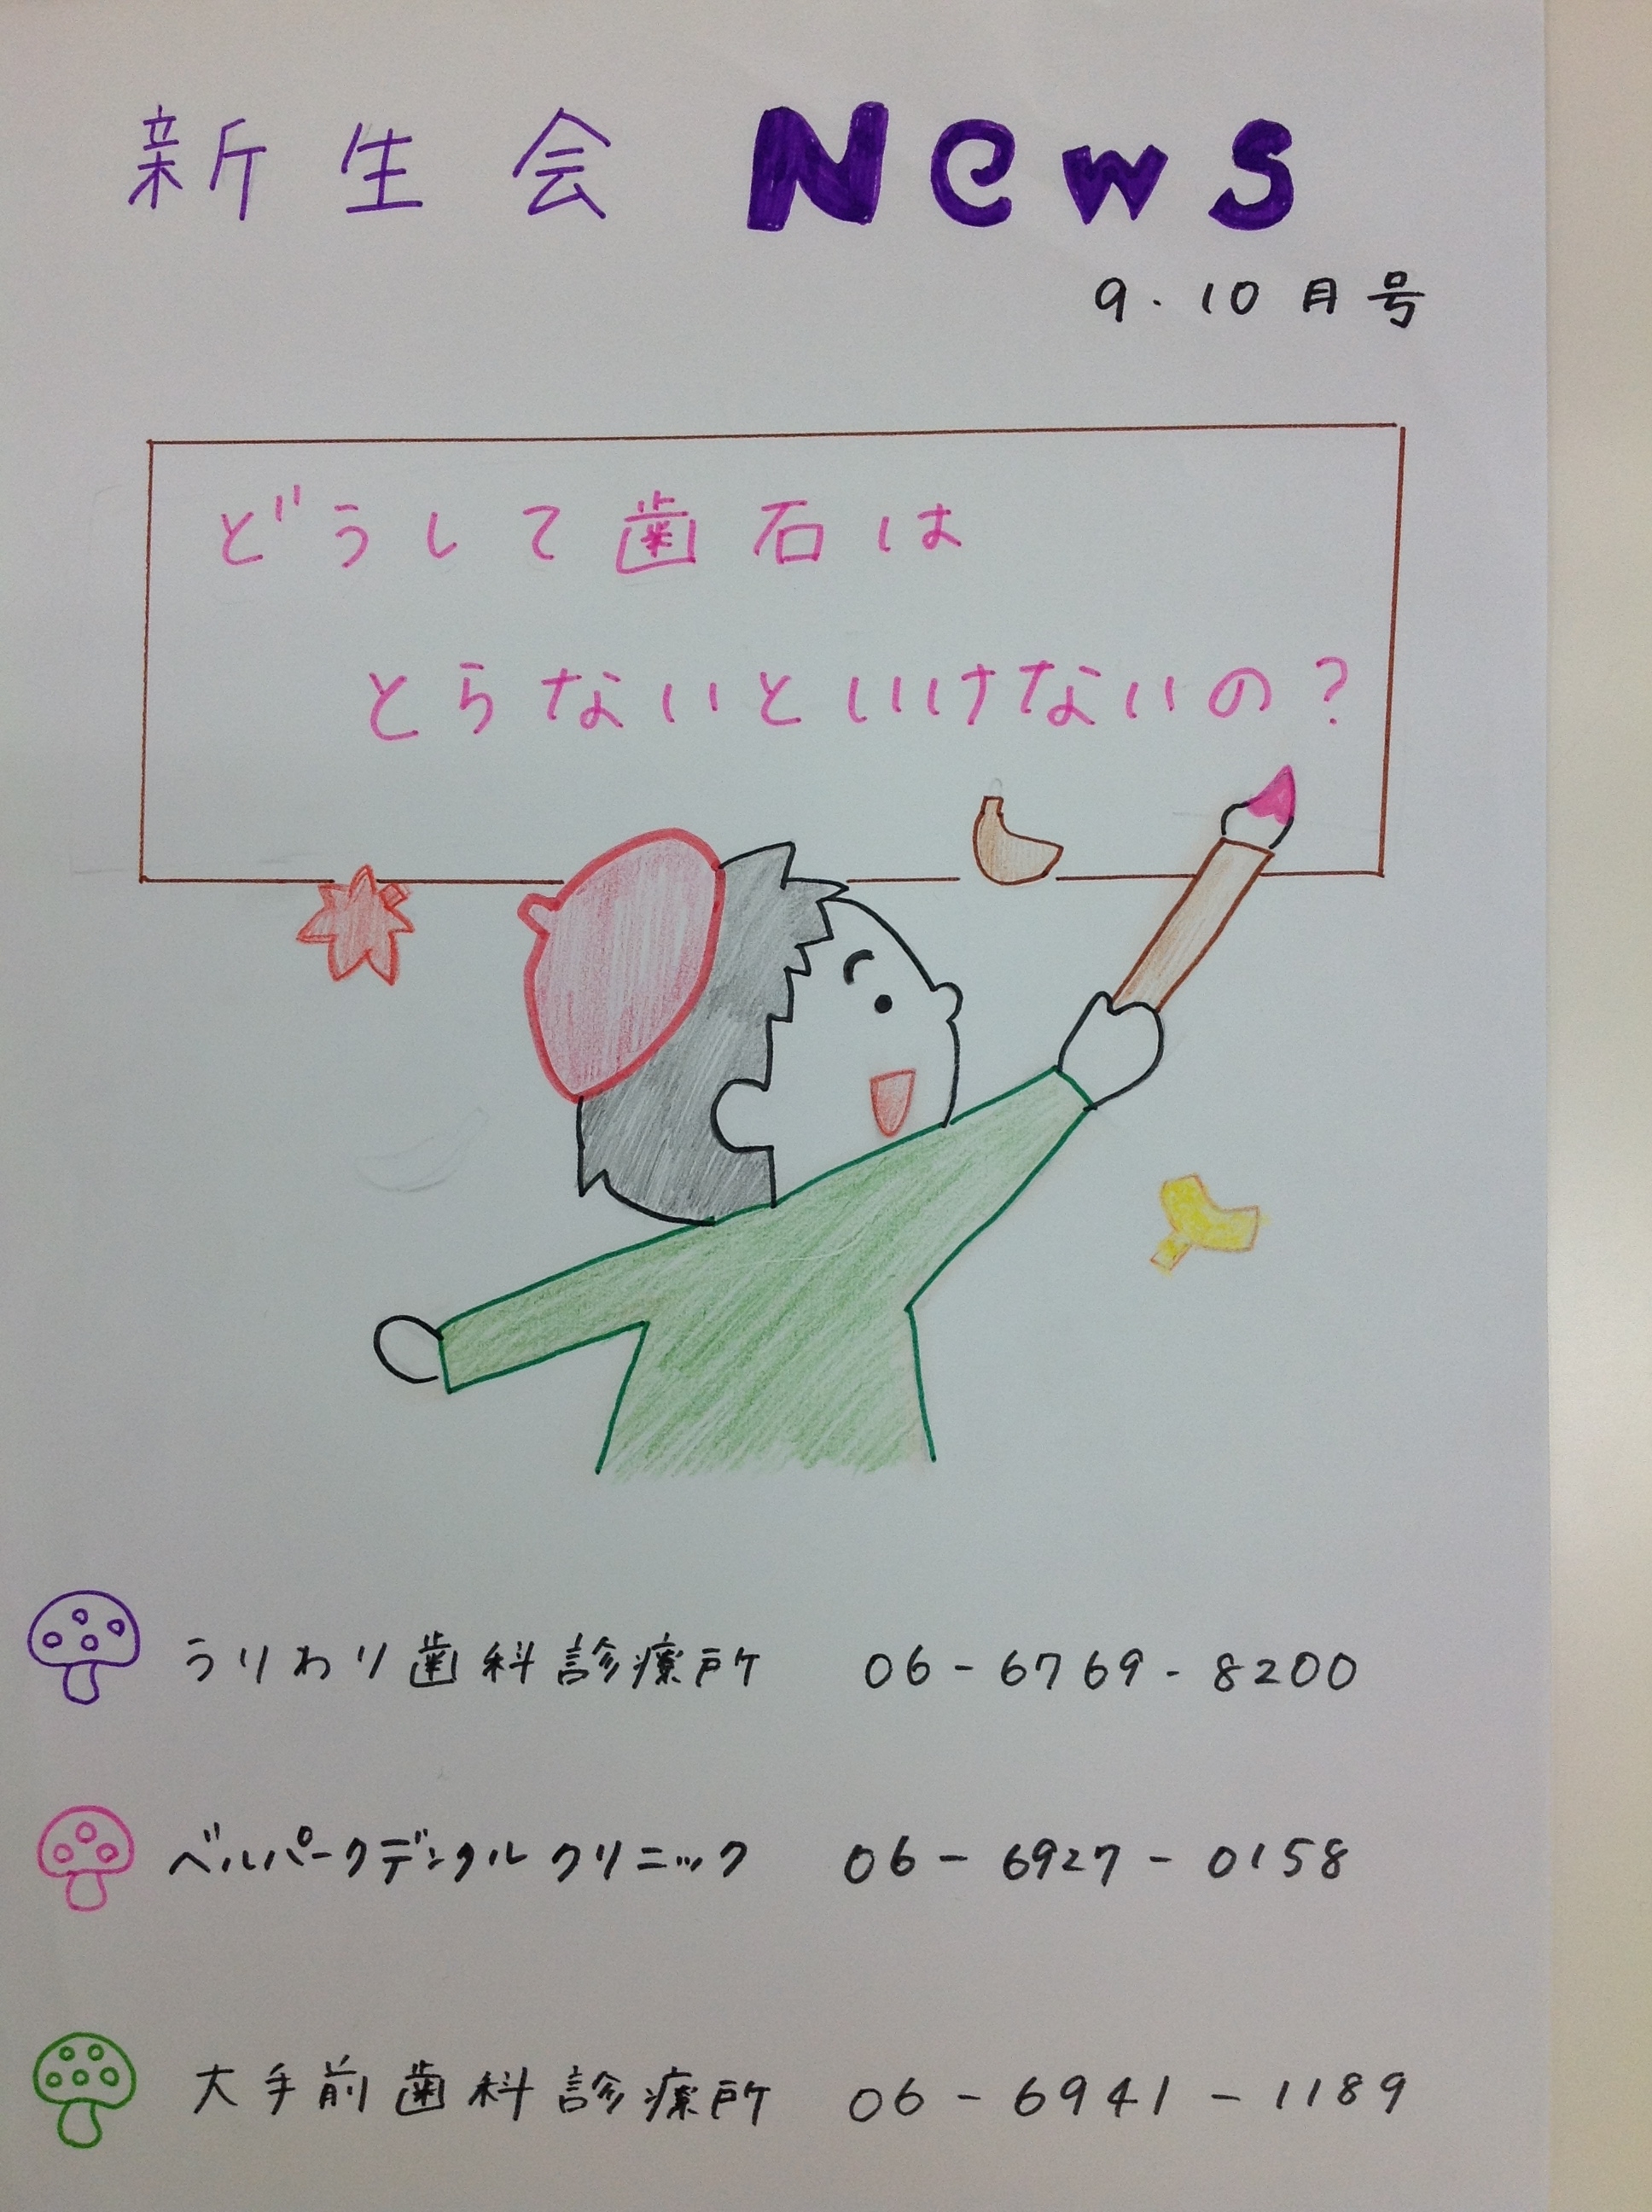 新生会 News
9.10月号
どうして歯石は
とらないといけないの?
うりわり歯科診療所 06-6769-8200
ベルパークデンタルクリニック 06-6927-0158
大手前歯科診療所 06-6941-1189